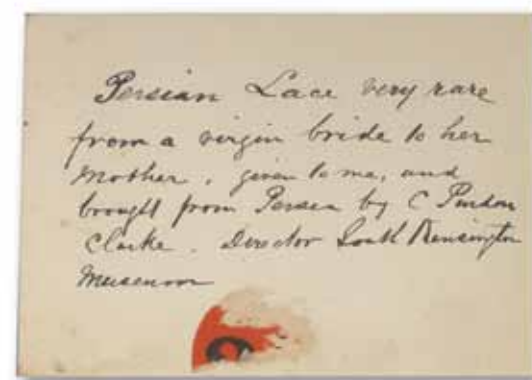 Persian Lace very rare
from a virgin bride to her
Mother, given to me, and
brought from Persia by C Purdon
Clarke. Director South Kensington
Museum